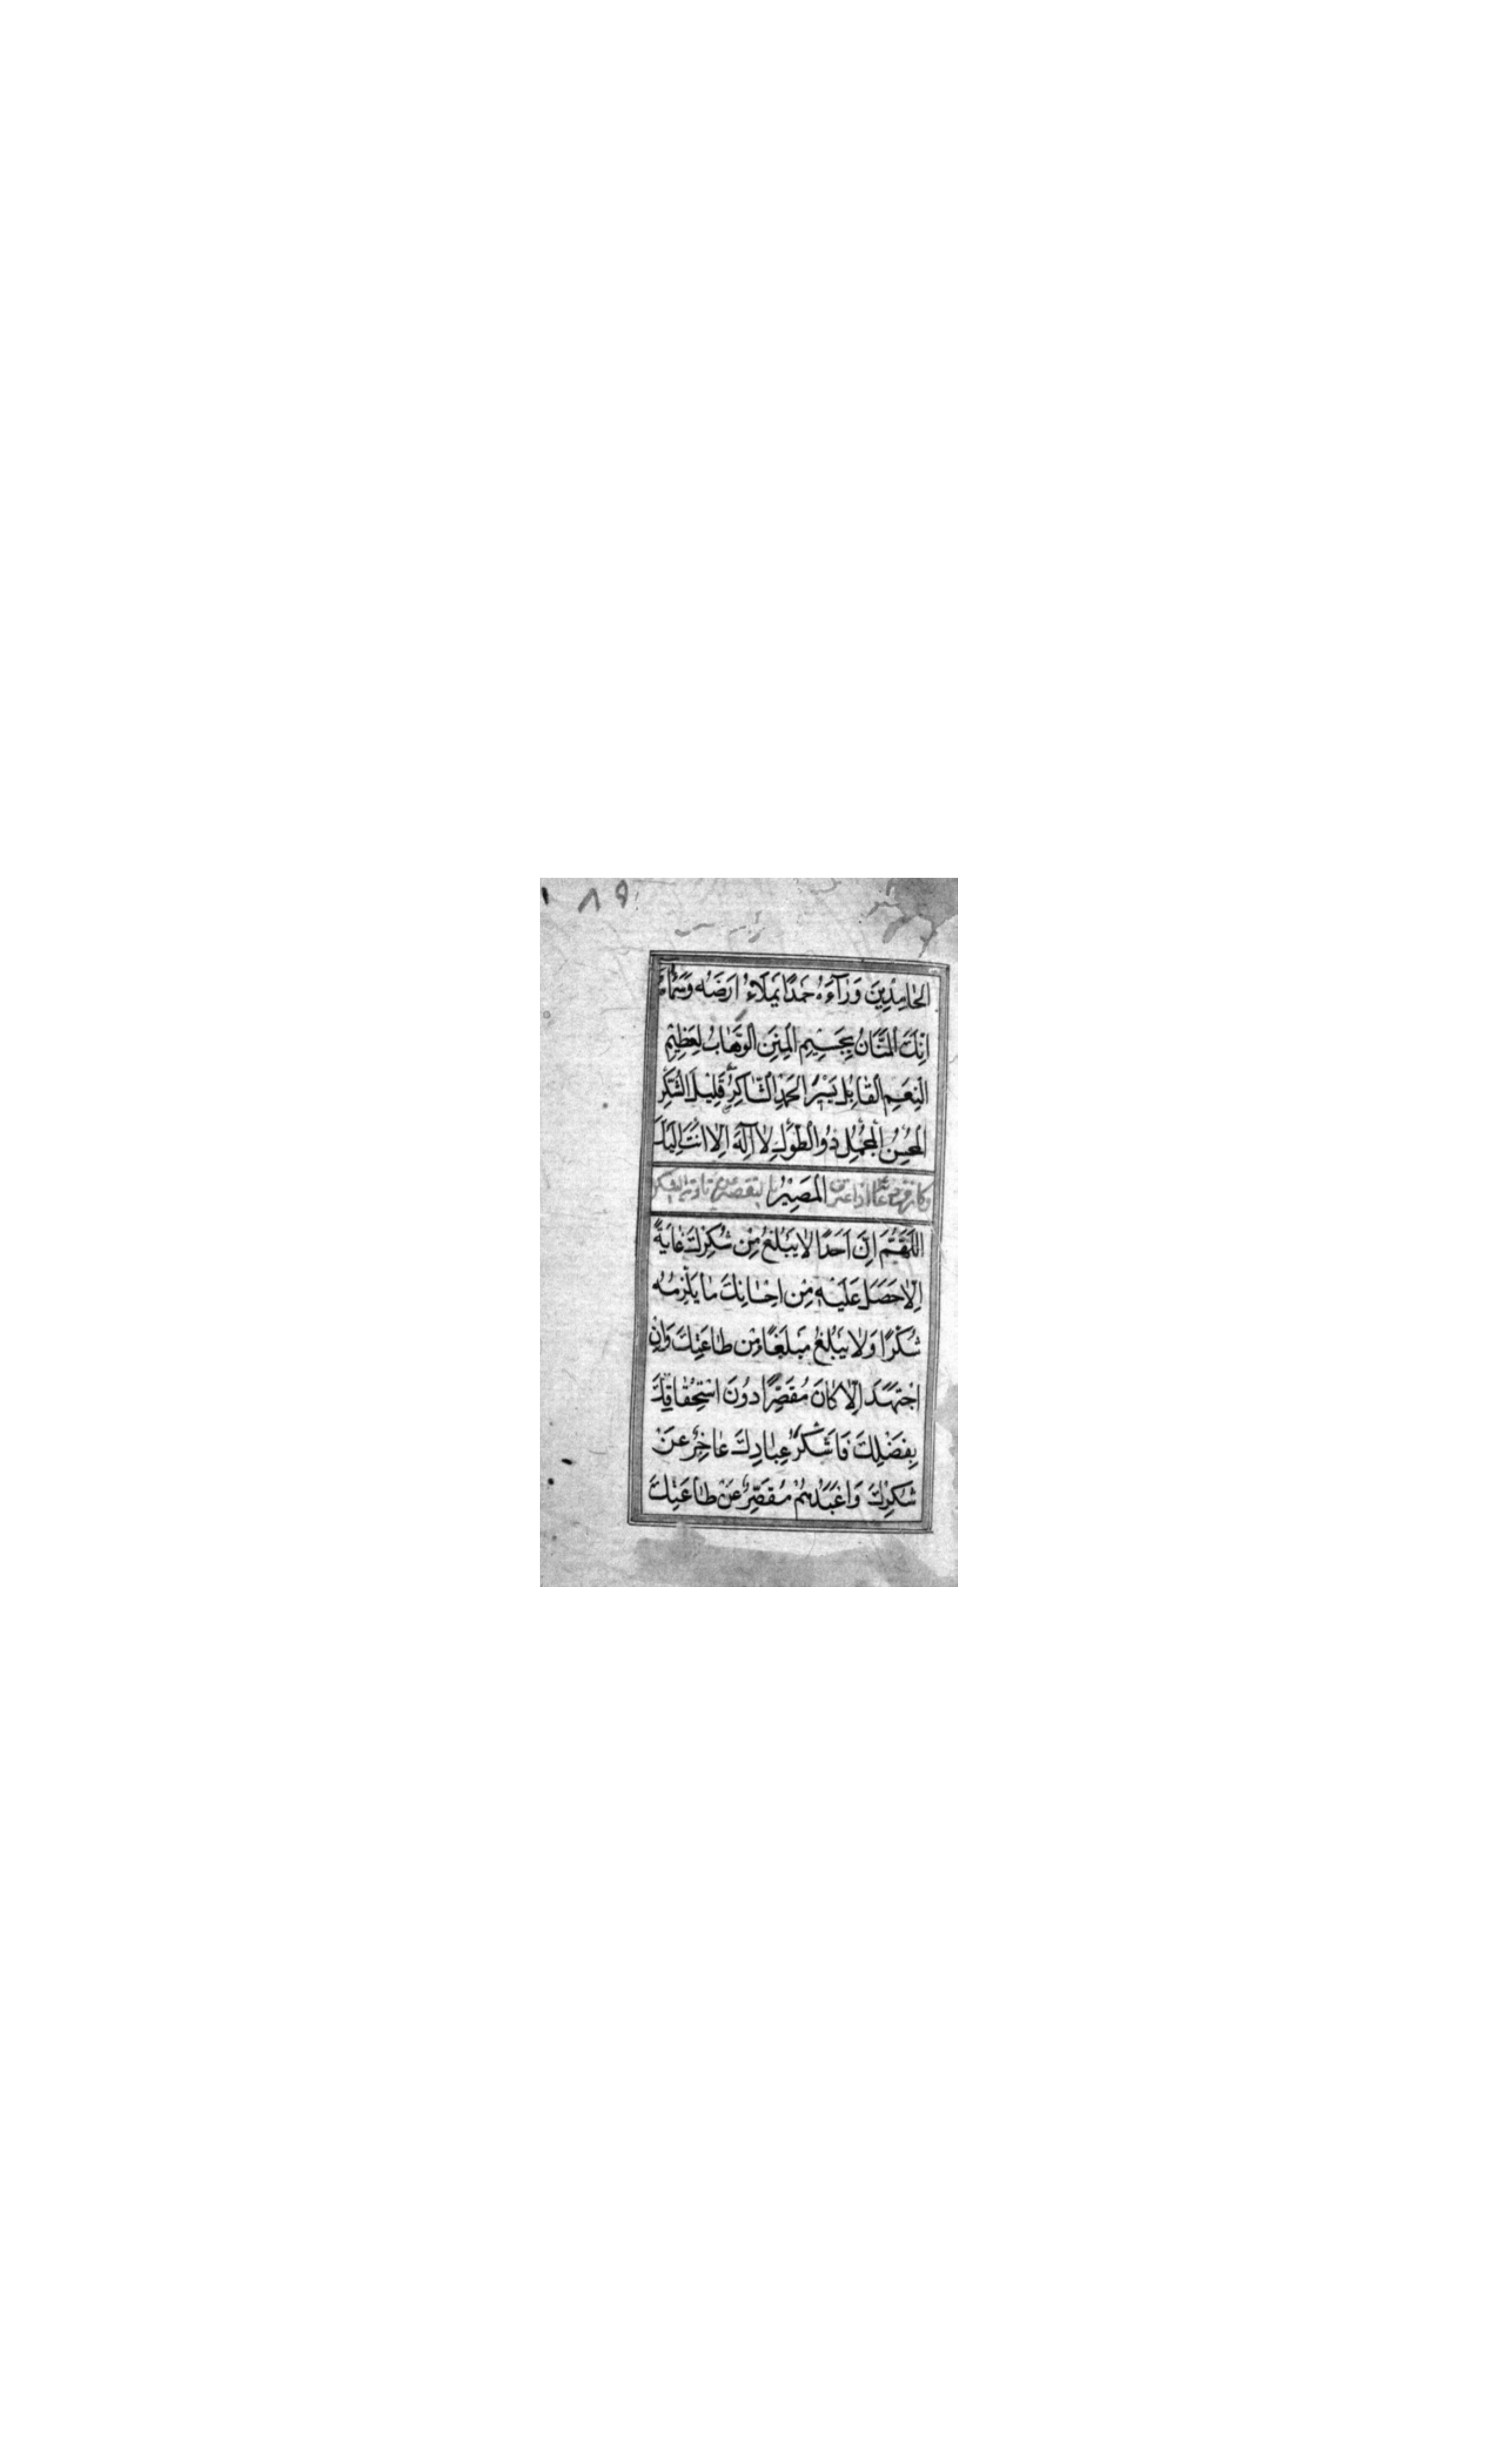 ١٨٩
الحامِدِينَ وَرٰآءَهُ حَمْدًا يَمْلَاءُ اَرْضَهُ وَسَمٰآءَهُ
اِنَّكَ الْمَنّٰانُ بِجَسِيمِ الْمِنَنِ الْوَهّٰابُ لِعَظِيمِ
النِّعَمِ الْقٰابِلُ يَسِيرَ الْحَمْدِ الشّٰاكِرُ قَلِيلَ الشُّكْرِ
الْمُحْسِنُ الْمُجْمِلُ ذُوالطَّوْلِ لٰا اِلٰهَ اِلّٰا اَنْتَ اِلَيْكَ
وكان من دعائه اذا اعترف الْمَصِيْرُ بالتقصير عن تادية الشكر
اَللّٰهُمَّ اِنَّ اَحَدًا لٰا يَبْلُغُ مِنْ شُكْرِكَ غٰايَةً
اِلّٰا حَصَلَ عَلَيْهِ مِنْ اِحْسٰانِكَ مٰا يَلْزِمُهُ
شُكْرًا وَلٰا يَبْلُغُ مَبْلَغًا مِنْ طٰاعَتِكَ وَاِنِ
اجْتَهَدَ اِلّٰا كٰانَ مُقَصِّرًا دُونَ اسْتِحْقٰاقِكَ
بِفَضْلِكَ فَاَشْكَرُ عِبٰادِكَ عٰاجِزٌ عَنْ
شُكْرِكَ وَاَعْبَدُهُمْ مُقَصِّرٌ عَنْ طٰاعَتِكَ